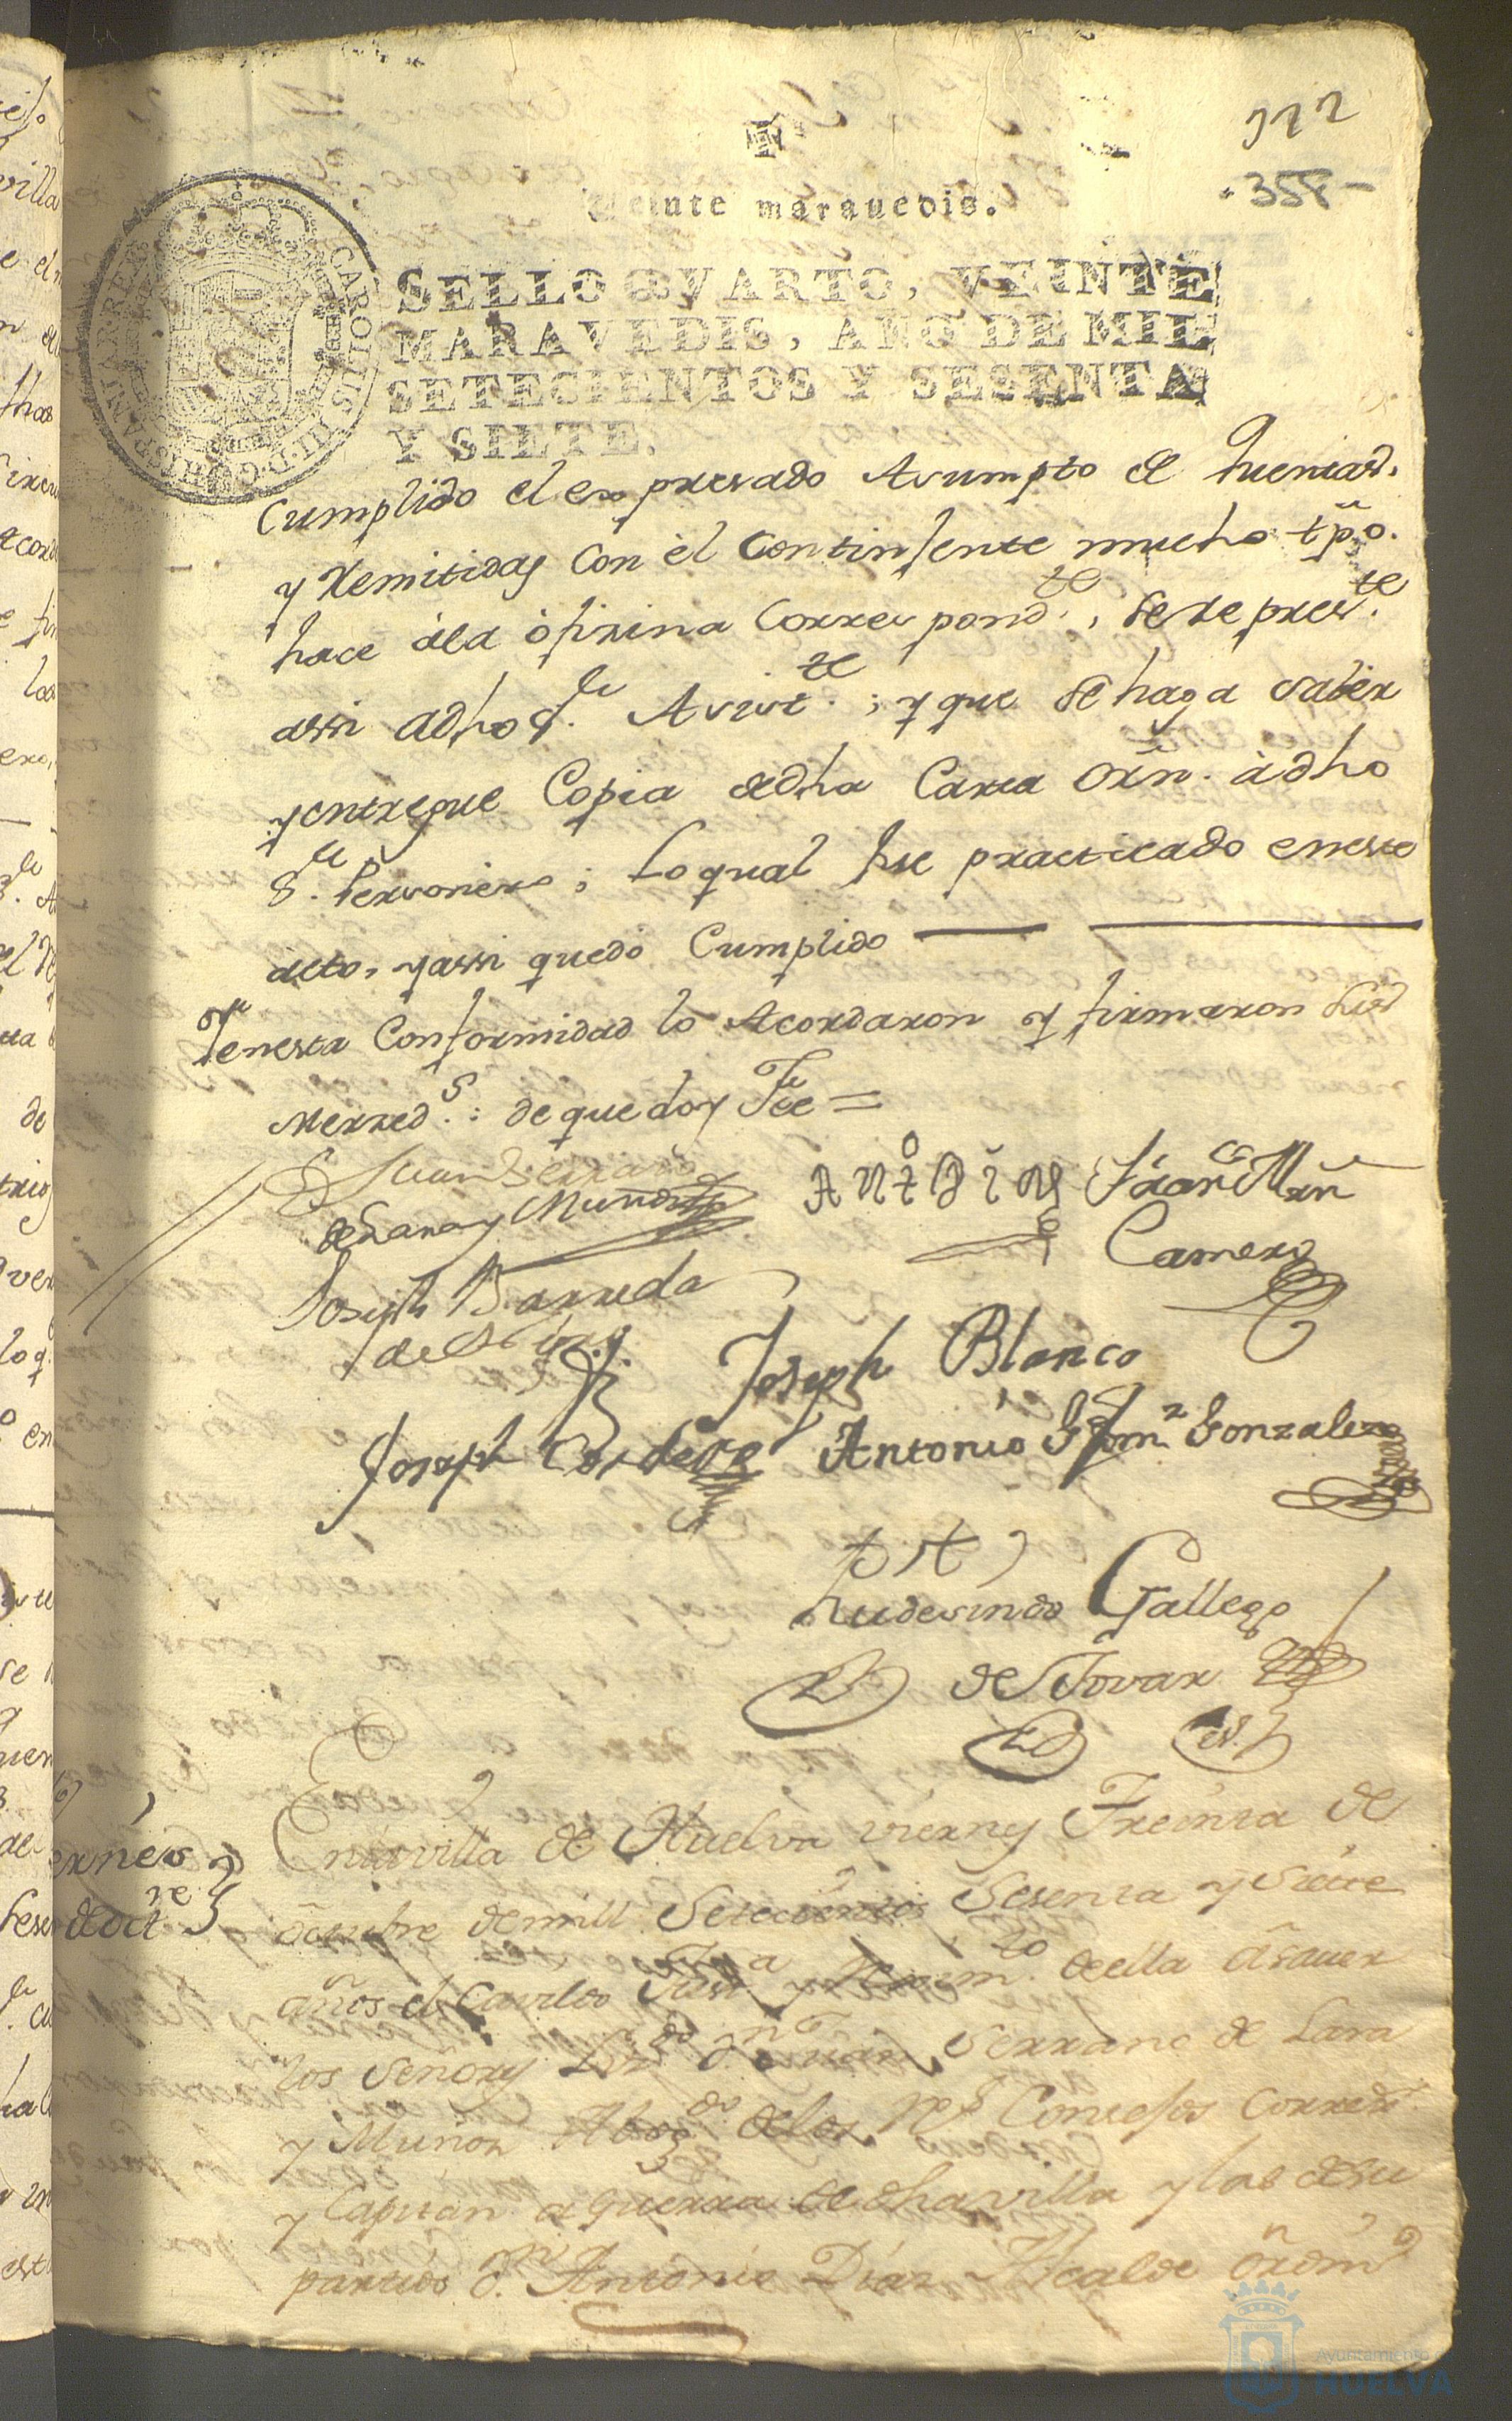 122
358
Veinte marauedis.
CAROLUS III D G HISPANIAR REX
SELLO QVARTO, VEINTE
MARAVEDIS, AÑO DE MIL
SETECIENTOS Y SESENTA
Y SIETE.
Cumplido el expresado Asumpto de
y Remitidas Con el Continjente mucho tpõ.
hace àla ofizina Correspondte, se represte
assi adho Sr. Asistte; y que se haga saber
y entregue Copia dedha Carta Orñ. àdho
Sr. Personero; Lo qual fue practicado eneste
acto, yassi quedó Cumplido
Yenesta Conformidad lo Acordaron y firmaron sus
Merzeds.: de que doy Fee =
Dn Juan Serrano
de Lara y Muñoz
Anto Diaz
Franco Mrñ
Camero
Joseph Barreda
Joseph Blanco
Joseph Cordero
Antonio Gonzalez
Rudesindo Gallego
de Tovar
Viernes
de Octre
En la villa de Huelva viernes Treinta de
Octubre de mill Setecientos Sesenta y Siete
años el Cavildo Justa y Reximto de ella à saver
los Señores Lizdo Dn Juan Serrano de Lara
y Muñoz Abogdo delos Rs Consejos Corredr
y Capitan a guerra de dha villa y las de su
partido Dn Antonio Diaz Alcalde ordino
Ayuntamiento
HUELVA